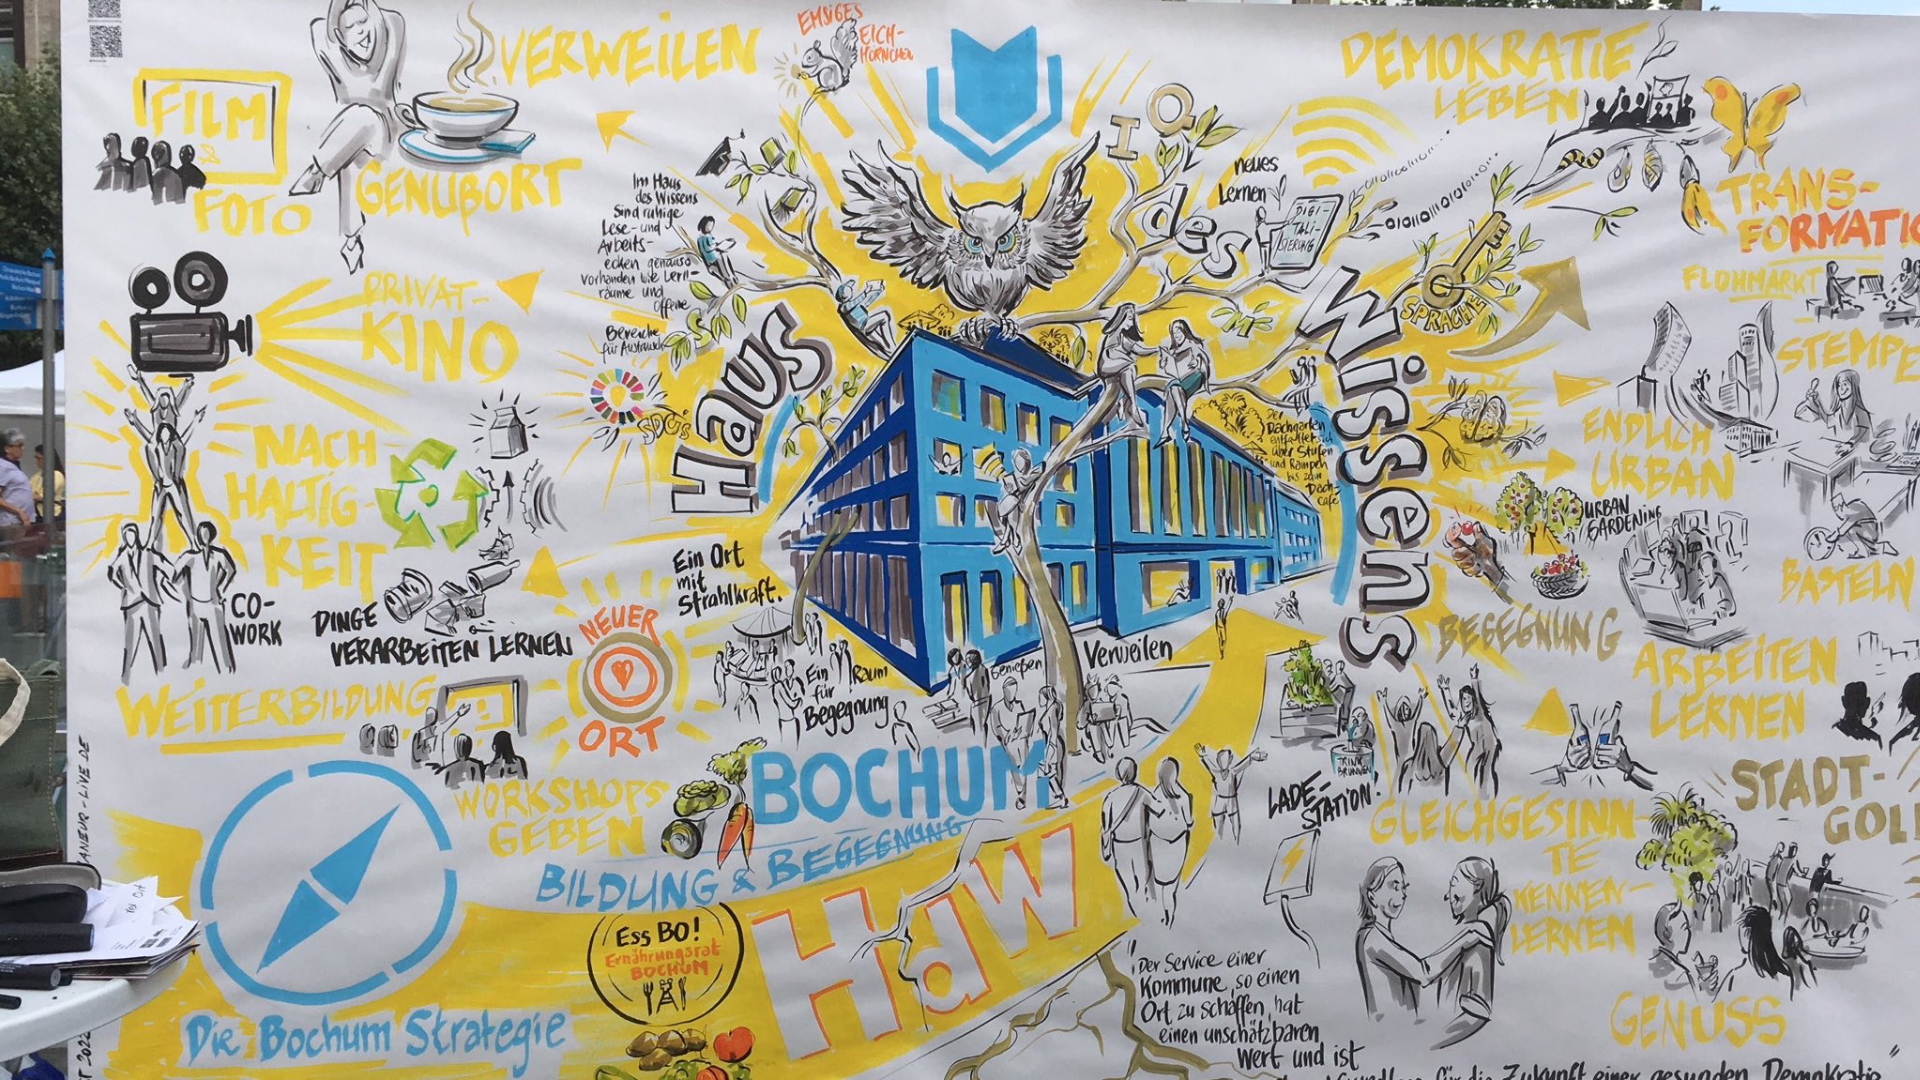 VERWEILEN
EMSIGES
EICH-
HÖRNCHEN
DEMOKRATIE
LEBEN
FILM
&
FOTO
GENUßORT
Im Haus
des Wissens
sind ruhige
Lese- und
Arbeits-
ecken genauso
vorhanden wie Lern-
räume und
offene
Bereiche
für Austausch
IQ
neues
Lernen
DIGI-
TALI-
SIERUNG
TRANS-
FORMATIO
FLOHMARKT
PRIVAT-
KINO
SPRACHE
STEMPE
Haus
des
Wissens
SDG's
NACH
HALTIG-
KEIT
Der
Dachgarten
entfaltet sich
über Stufen
und Rampen
bis zum
Dach-
café
ENDLICH
URBAN
URBAN
GARDENING
BASTELN
Ein Ort
mit
Strahlkraft.
CO-
WORK
DINGE
VERARBEITEN LERNEN
NEUER
ORT
BEGEGNUNG
ARBEITEN
LERNEN
Ein Raum
für
Begegnung
Genießen
Verweilen
WEITERBILDUNG
WORKSHOPS
GEBEN
TRINK
BRUNNEN
LADE-
STATION!
GLEICHGESINN-
TE
KENNEN-
LERNEN
STADT-
GOL
BOCHUM
BILDUNG & BEGEGNUNG
HdW
Ess BO!
Ernährungsrat
BOCHUM
Die Bochum Strategie
"Der Service einer
Kommune, so einen
Ort zu schaffen, hat
einen unschätzbaren
Wert und ist
für die Zukunft einer gesunden Demokratie"
GENUSS
ANEUR-LIVE.DE
ST 2022